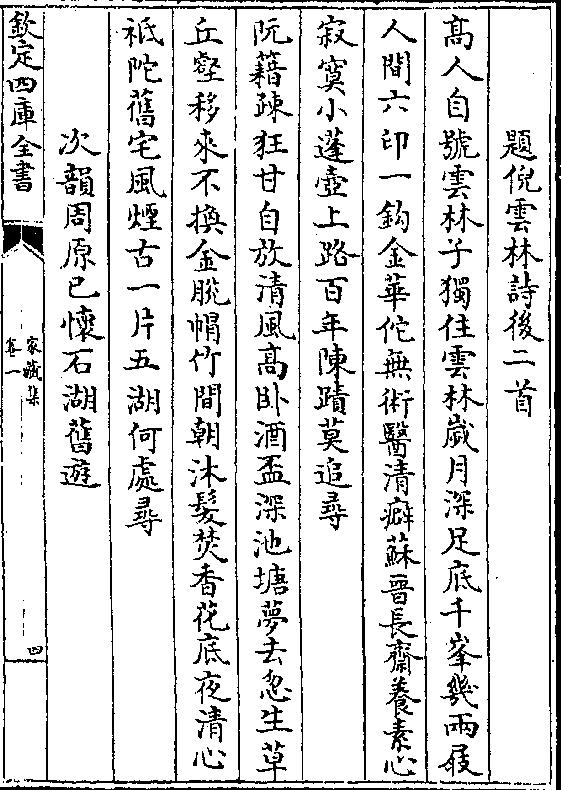 題倪雲林詩後二首
髙人自號雲林子獨住雲林嵗月深足底千峯幾兩屐
人間六印一鈎金華佗無術醫清癖蘇晉長齋養素心
寂寞小蓬壺上路百年陳蹟莫追尋
阮籍疎狂甘自放清風髙卧酒盃深池塘夢去忽生草
丘壑移來不換金脫帽竹間朝沐髮焚香花底夜清心
祗陀舊宅風煙古一片五湖何處尋
次韻周原已懷石湖舊遊
欽定四庫全書
家藏集
卷一
四